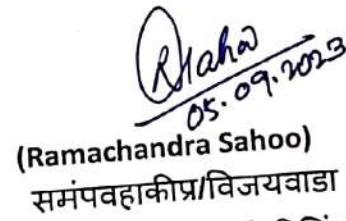 RSahoo
05.09.2023
(Ramachandra Sahoo)
समंपवहाकीप्र/विजयवाडा